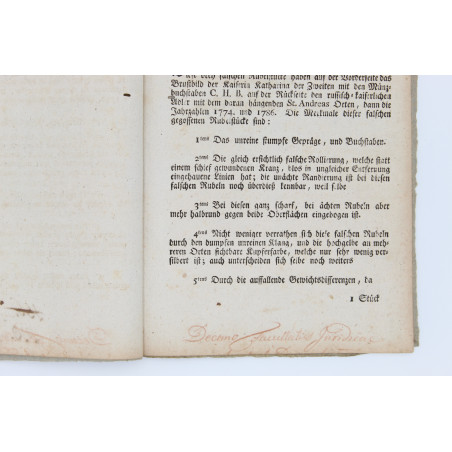 falschen Rubelstücke haben auf der Vorderseite das
Brustbild der Kaiserin Katharina der Zweiten mit den Münz-
buchstaben C. H. B. auf der Rückseite den russisch-kaiserlichen
Adler mit dem daran hängenden St. Andreas Orten, dann die
Jahrzahlen 1774. und 1786. Die Merkmale dieser falschen
gegossenen Rubelstücke sind:
1tens Das unreine stumpfe Gepräge, und Buchstaben.
2tens Die gleich ersichtlich falsche Rollierung, welche statt
einem schief gewundenen Kranz, blos in ungleicher Entfernung
eingehauene Linien hat; die unächte Randierung ist bei diesen
falschen Rubeln noch überdieß kennbar, weil selbe
3tens Bei diesen ganz scharf, bei ächten Rubeln aber
mehr halbrund gegen beide Oberflächen eingebogen ist.
4tens Nicht weniger verrathen sich diese falschen Rubeln
durch den dumpfen unreinen Klang, und die hochgelbe an meh-
reren Orten sichtbare Kupferfarbe, welche nur sehr wenig ver-
silbert ist; auch unterscheiden sich selbe noch weiters
5tens Durch die auffallende Gewichtsdifferenzen, da
1 Stück